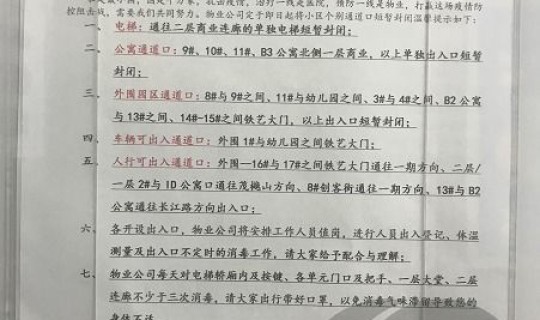 控阻击战，需要我们共同努力。物业公司定于即日起将小区个别通道口短暂封闭温馨提示如下：
一、 电梯：通往二层商业连廊的单独电梯短暂封闭；
二、 公寓通道口：9#、10#、11#、B3 公寓北侧一层商业，以上单独出入口短暂
封闭；
三、 外围园区通道口：8#与 9#之间、11#与幼儿园之间、3#与 4#之间、B2 公寓
与 13#之间、14#-15#之间铁艺大门，以上出入口短暂封闭；
四、 车辆可出入通道口：外围 1#与幼儿园之间铁艺大门；
五、 人行可出入通道口：外围—16#与 17#之间铁艺大门通往一期方向、二层/
一层 2#与 ID 公寓口通往茂樾山方向、8#创客街通往一期方向、13#与 B2
公寓通往长江路方向出入口；
六、 各开设出入口，物业公司将安排工作人员值岗，进行人员出入登记、体温
测量及出入口不定时的消毒工作，请大家给予配合与理解；
七、 物业公司每天对电梯轿厢内及按键、各单元门口及把手、一层大堂、二层
连廊不少于三次消毒，请大家出行带好口罩，以免消毒气味滞留导致您的
身体不适